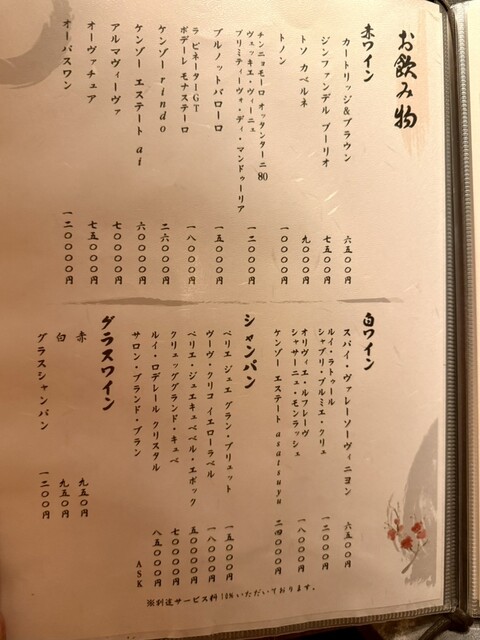 お飲み物
赤ワイン
カートリッジ&ブラウン 六五〇〇円
ジンファンデル ブーリオ 七五〇〇円
トソ カベルネ 九〇〇〇円
トノン 一〇〇〇〇円
チンニョモーロ オッタンターニ 80
ヴェッキエ・ヴィーニュ
プリミティーヴォ・ディ・マンドゥーリア 一二〇〇〇円
ブルノットバローロ 一五〇〇〇円
ラ ピネーターGT
ボデーレ モナステーロ 一八〇〇〇円
ケンゾー rindo 二六〇〇〇円
ケンゾー エステート ai 六〇〇〇〇円
アルマヴィーヴァ 七〇〇〇〇円
オーヴァチュア 七五〇〇〇円
オーパスワン 一二〇〇〇〇円
白ワイン
スパイ・ヴァレーソーヴィニヨン 六五〇〇円
ルイ・ラトゥール
シャブリ・プルミエ・クリュ 一二〇〇〇円
オリヴィエ・ルフレーヴ
シャサーニュ・モンラッシェ 一八〇〇〇円
ケンゾー エステート asatsuyu 二四〇〇〇円
シャンパン
ベリエ ジュエ グラン・ブリュット 一五〇〇〇円
ヴーヴ・クリコ イエローラベル 一八〇〇〇円
ベリエ・ジュエキュベベル・エポック 五〇〇〇〇円
クリュッググランド・キュベ 七〇〇〇〇円
ルイ・ロデレール クリスタル 八五〇〇〇円
サロン・ブランド・ブラン ASK
グラスワイン
赤 九五〇円
白 九五〇円
グラスシャンパン 一二〇〇円
※別途サービス料10%いただいております。